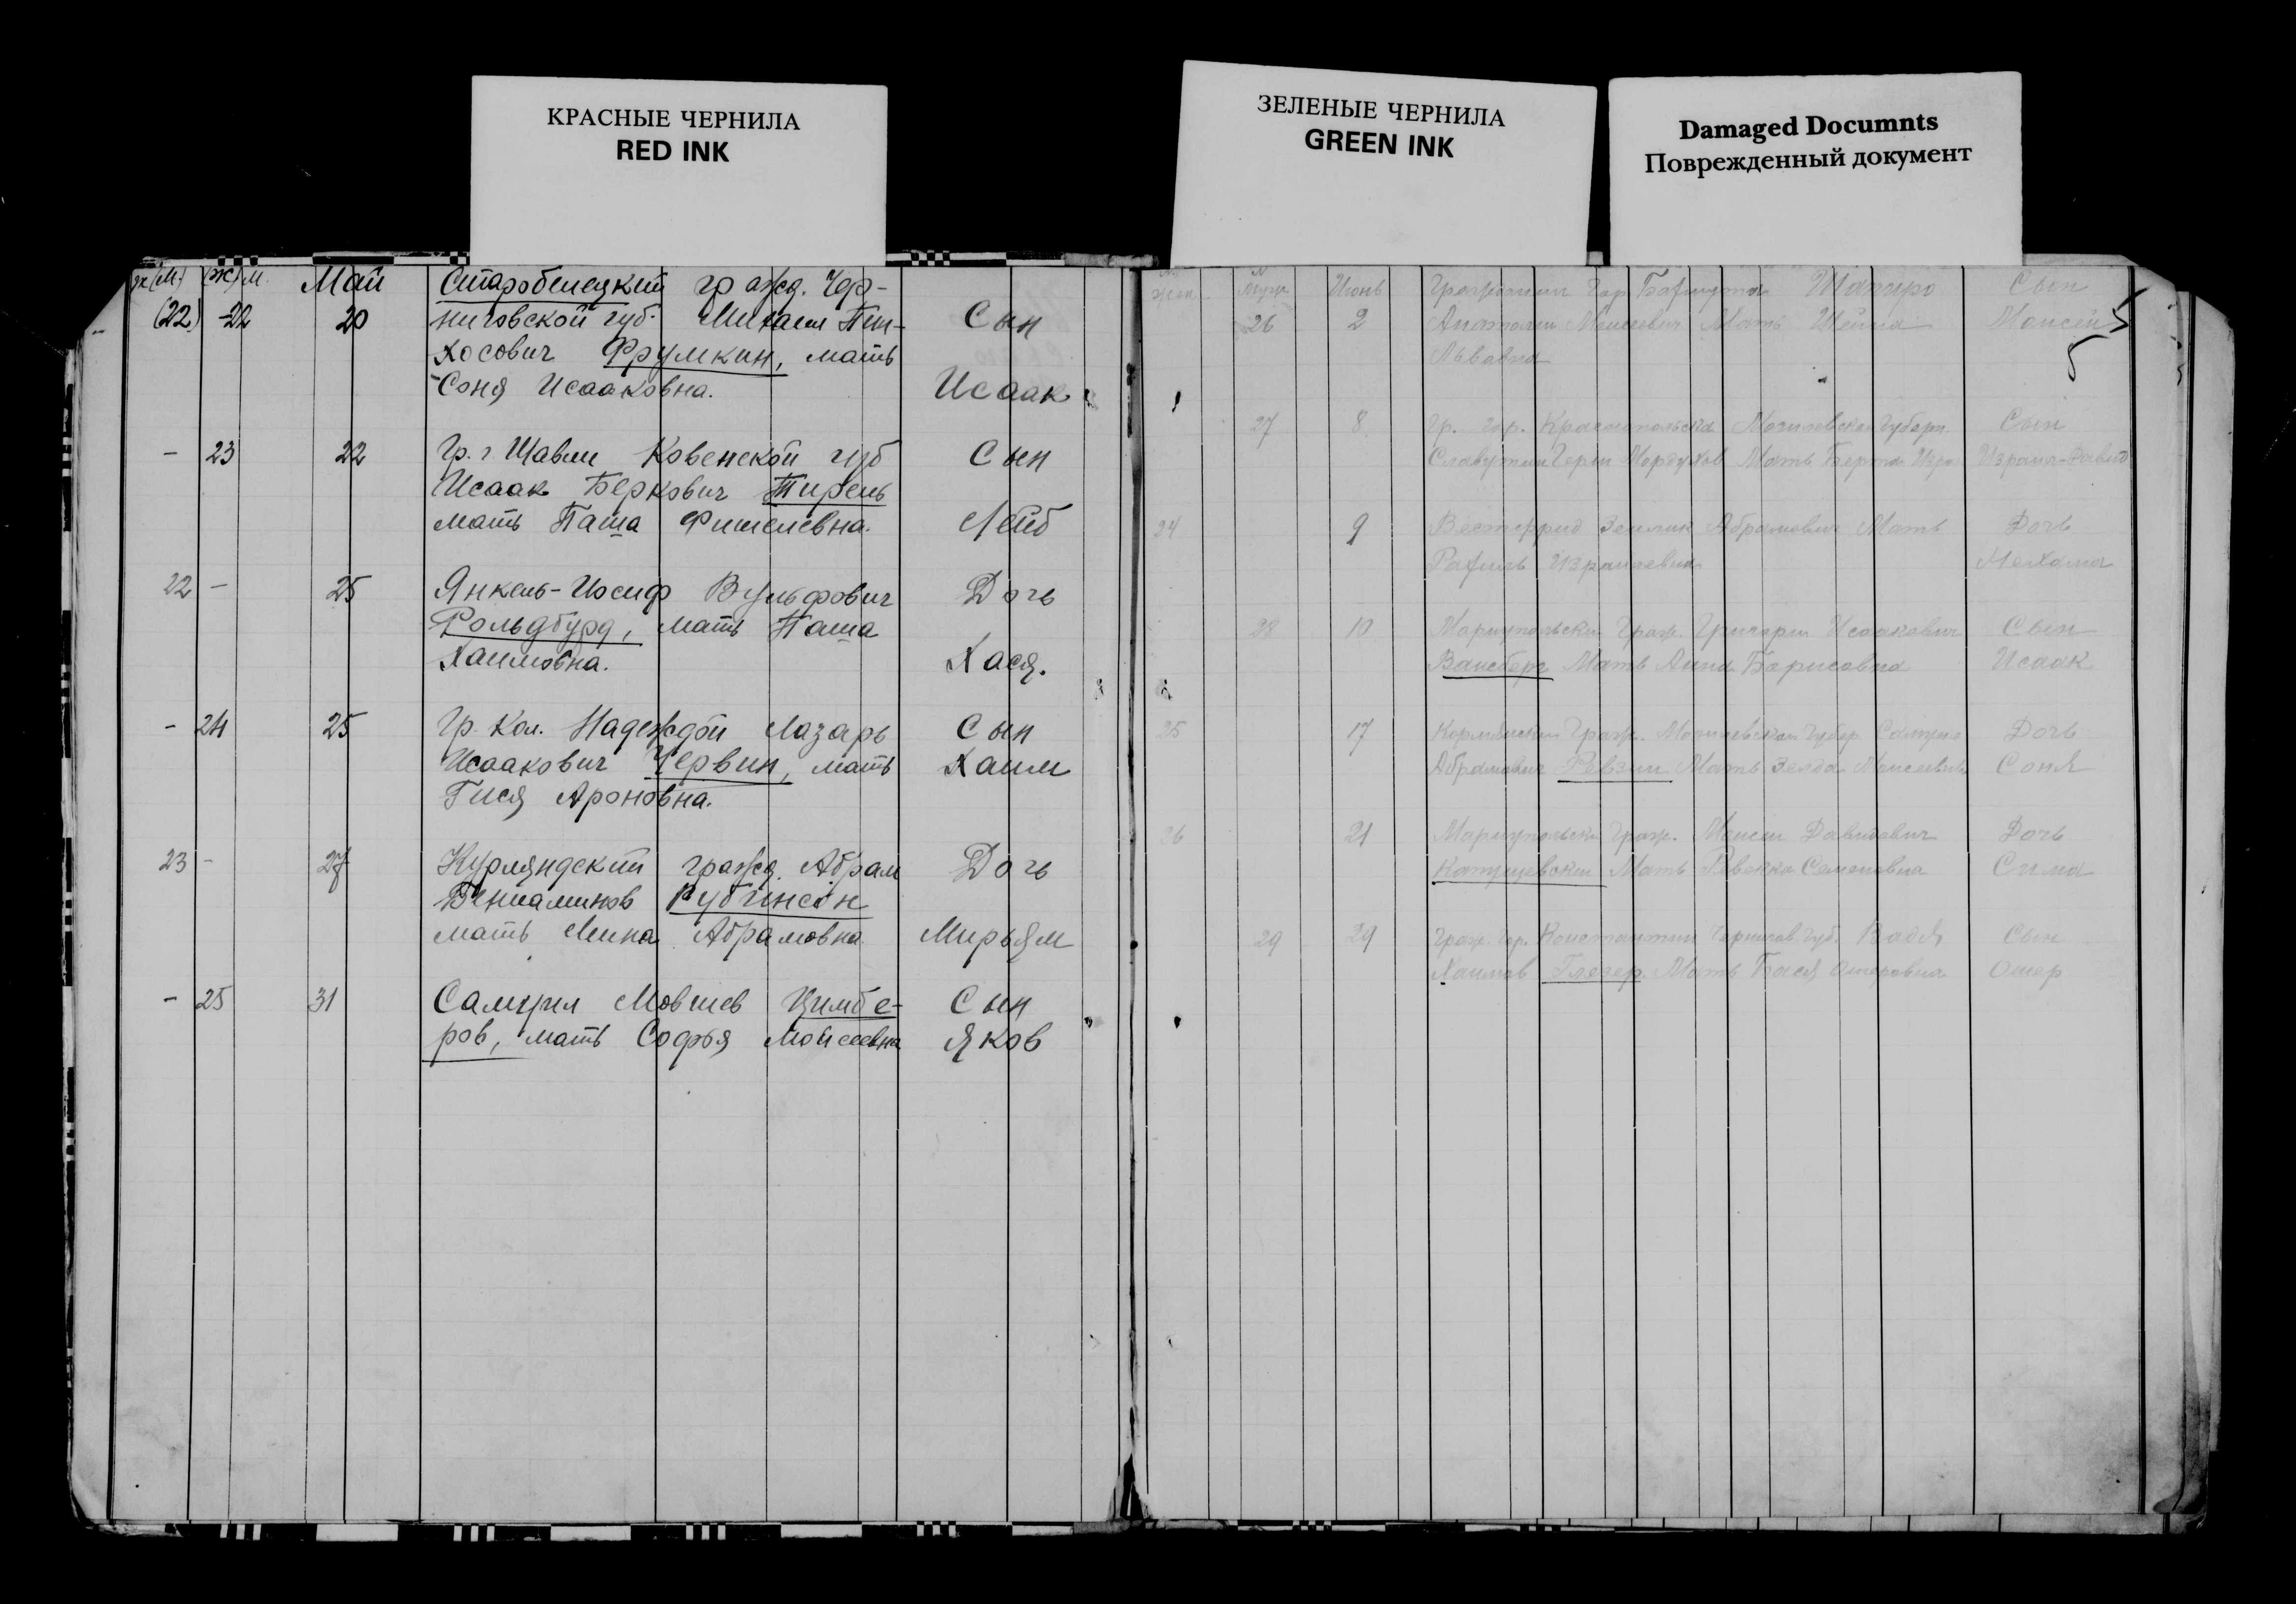 КРАСНЫЕ ЧЕРНИЛА
RED INK
ЗЕЛЕНЫЕ ЧЕРНИЛА
GREEN INK
Damaged Documnts
Поврежденный документ
Май Старобелецкий гражд. Чер-
(22) -22 20 ниговской губ. Михаил Пин- Сын
хосович Фрумкин, мать
Соня Исааковна. Исаак
- 23 22 Гр. г Шавли Ковенской губ Сын
Исаак Беркович Тирель
мать Паша Фишелевна. Лейб
22 - 25 Янкель-Иосиф Вульфович Дочь
Гольдбурд, мать Паша
Хаимовна. Хася.
- 24 25 Гр. Кол. Надеждой Лазарь Сын
Исаакович Червин, мать Хаим
Гися Ароновна.
23 - 27 Курляндский гражд. Абрам Дочь
Бениаминов Рубинсон
мать Мина Абрамовна Мирьям
- 25 31 Самуил Мовшев Цимбе- Сын
ров, мать Софья Мойсеевна Яков
Июнь Гражданин Гор. Шапиро Сын
26 2 Анатолий Моисеевич Мать Шейна Моисей
Львовна
27 8 Гр. гор. Краснопольска Могилевской Губерн. Сын
Славутин Герш Мордухов Мать Берта Израил-Давид
24 9 Вестфрид Зелик Абрамович Мать Дочь
Рахиль Израилевна Нехама
28 10 Мариупольский Граж. Григорий Исаакович Сын
Вайсберг Мать Анна Борисовна Исаак
25 17 Кормянский Граж. Могилевской Губер Самуил Дочь
Абрамович Ревзин Мать Зелда Моисеевна Соня
26 21 Мариупольский Граж. Моисей Давидович Дочь
Мать Ревекка Семеновна Сима
29 29 Граж. Гор. Константин Чернигов. Губ. Сын
Хаимов Глезер Мать Бася Ошеровна Ошер